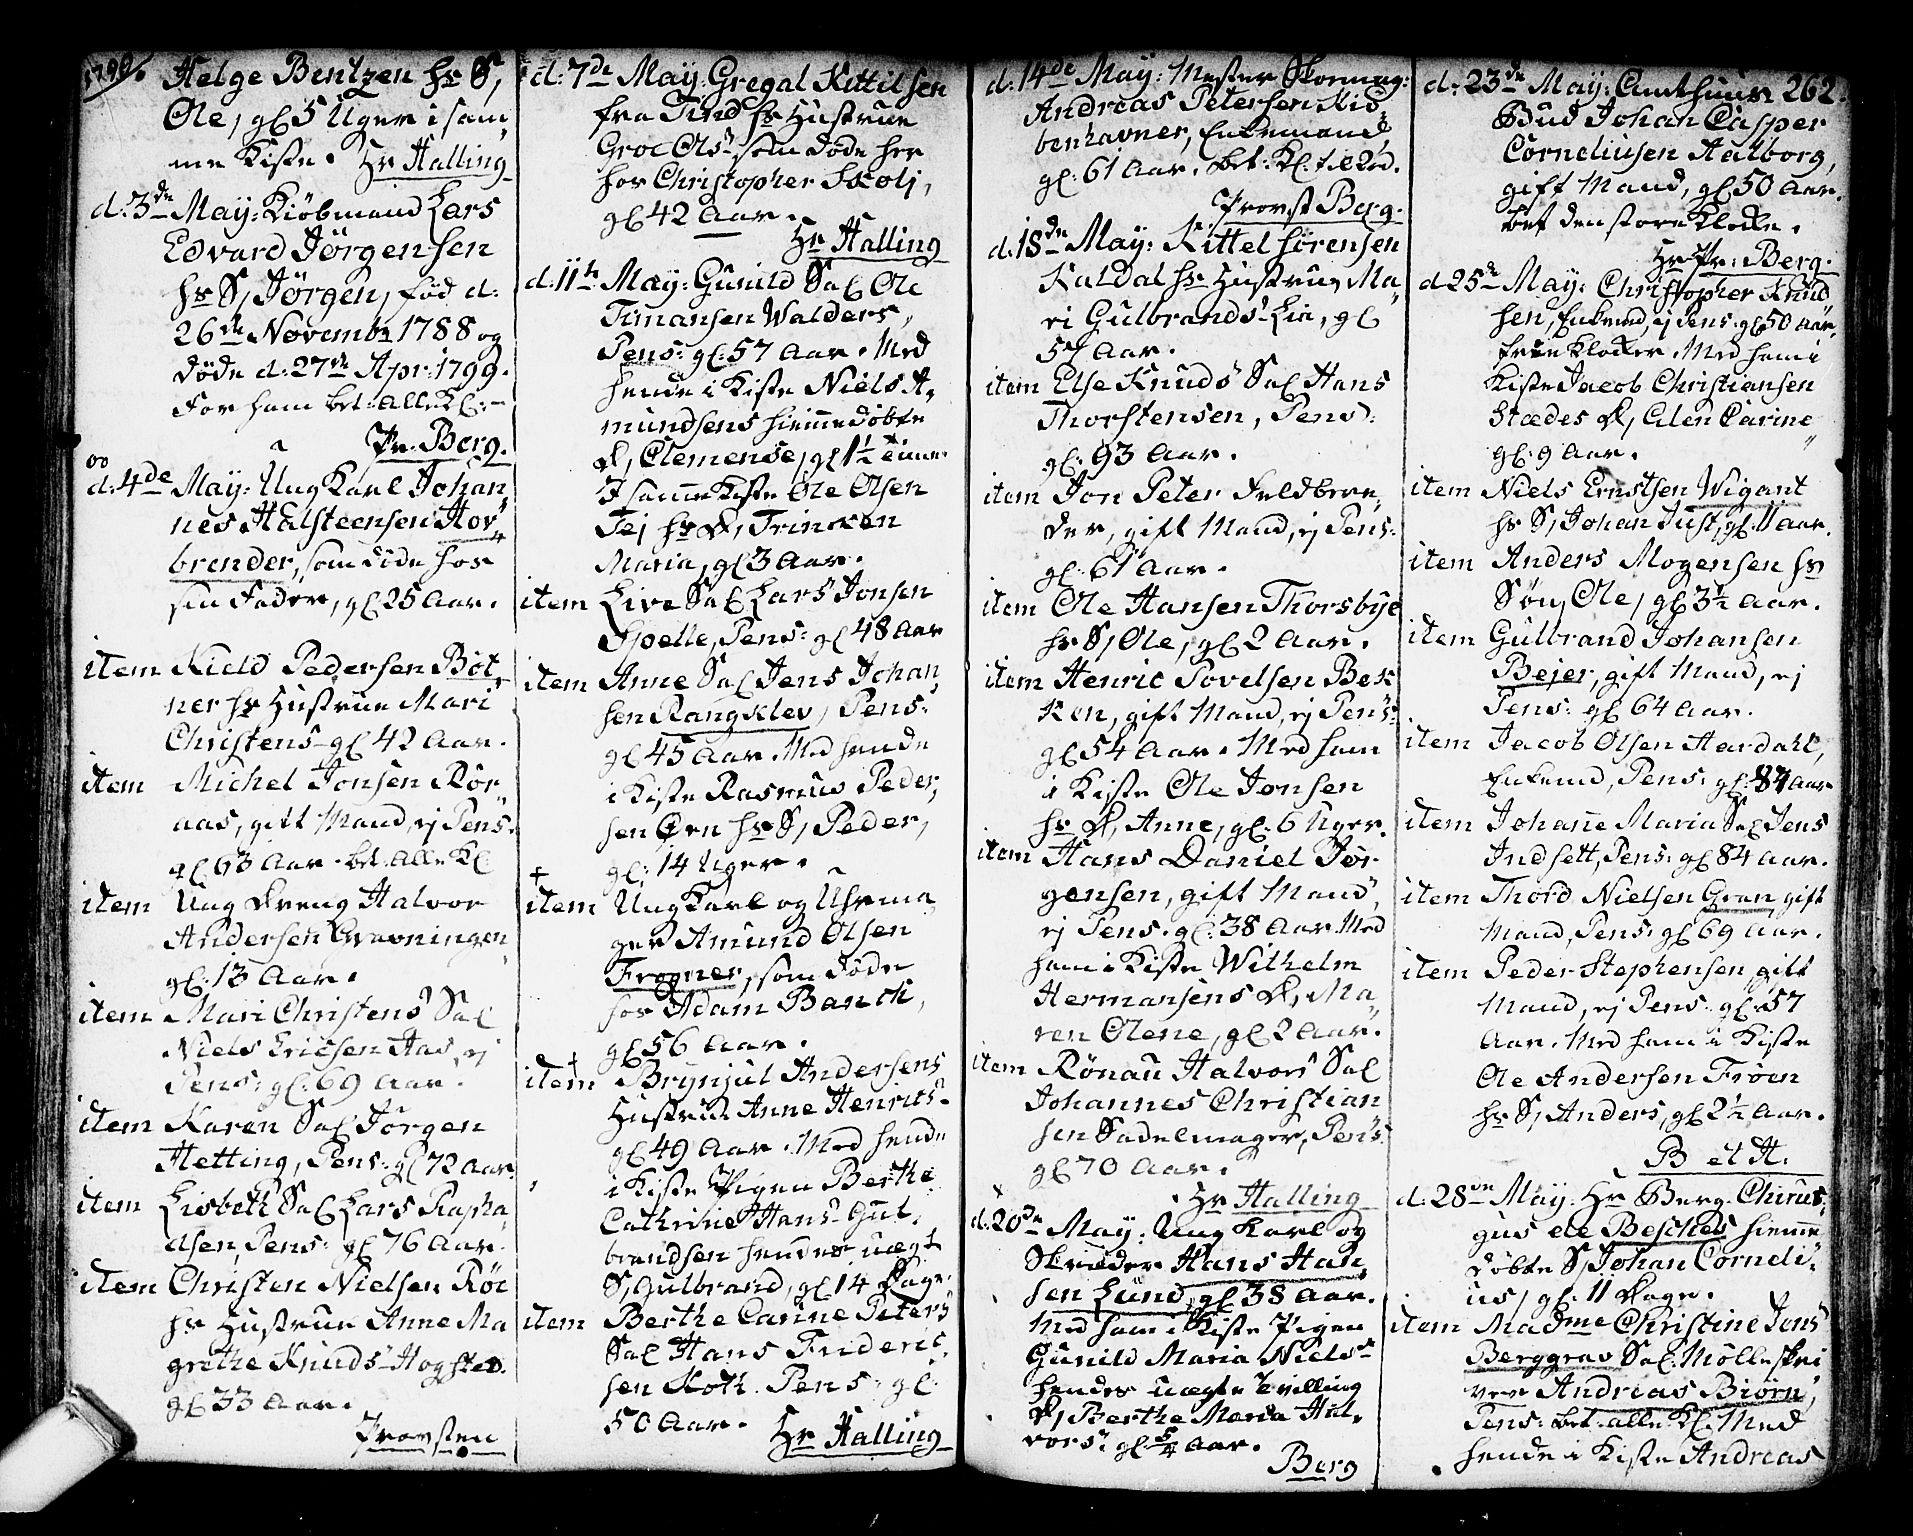 1799.
Helge Bentzen hs S,
Ole, gl 5 Uger i sam„
me Kiste. Hr Halling
d: 3de May: Kiöbmand Lars
Edvard Jörgensen
hs S, Jörgen, fød d:
26de Novembr 1788 og
døde d: 27de Apr: 1799.
For ham bet: alle Kl:
Pr. Berg.
d: 4de May: Ung Karl Johan„
nes Halsteensen Hov„
brender, som døde hos
sin Fader, gl 25 Aar.
item Kield Pedersen Böt„
ner hs Hustrue Mari
Christens- gl 42 Aar.
item Michel Jonsen Rør„
aas, gift Mand, ej Pens:
gl 63 Aar. bet: alle Kl
item Ung Dreng Halvor
Andersen Gravningen
gl: 13 Aar.
item Mari Christens Sal
Niels Ericsen Aas, ej
Pens: gl: 69 Aar.
item Karen Sal Jörgen
Hetting, Pens: gl 72 Aar.
item Lisbeth Sal Lars Rapha„
elsen, Pens: gl 76 Aar.
item Christen Nielsen Röe
hs Hustrue Anne Ma„
grethe Knuds- Hogsted.
gl 33 Aar.
Provsten
d: 7de May: Gregal Kittilsen
fra Tind hs Hustrue
Groe Ols- som døde her
hos Christopher Scolj,
gl 42 Aar.
Hr Halling
d: 11te May: Gunild Sal Ole
Timansen Walders,
Pens: gl: 57 Aar. Med
hende i Kiste Niels A„
mundsens hiemmedøbte
D, Clemense, gl 1½ time.
I samme Kiste Ole Olsen
Tej hs D, Trinken
Maria, gl 3 Aar.
item Live Sal Lars Jonsen
Fjelle, Pens: gl 48 Aar
item Anne Sal Jens Johan„
sen Rangklev, Pens:
gl 45 Aar. Med hende
i Kiste Rasmus Peder„
sen Ørn hs S, Peder,
gl: 14 Uger.
item Ung Karl og Uhrma„
ger Amund Olsen
Frogner, som døde
hos Adam Banck,
gl 56 Aar.
item Brynjul Andersens
Hustrue Anne Henrics-
gl 49 Aar. Med hende
i Kiste Pigen Berthe
Cathrine Hans- Gul„
brandsen hendes uægt
S, Gulbrand, gl 14 Dage.
item Berthe Carine Peters
Sal Hans Frideric„
sen Koth. Pens: gl:
50 Aar.
Hr Halling
d: 14de May: Mester Skomag:
Andreas Petersen Kiö„
benhavner, Enkemand,
gl: 61 Aar. bet: Kl: til Rid.
Provst Berg.
d: 18de May: Kittel Sörensen
Kaldal hs Hustrue Ma„
ri Gulbrands- Lia, gl
57 Aar.
item Else Knuds Sal Hans
Thorstensen, Pens:
gl: 93 Aar.
item Jon Peter Feldbere„
der, gift Mand, ej Pens:
gl: 61 Aar.
item Ole Hansen Thorsbye
hs S, Ole, gl 2 Aar.
item Henric Povelsen Bek„
ken, gift Mand, ej Pens:
gl 54 Aar. Med ham
i Kiste Ole Jonsen
hs D, Anne, gl: 6 Uger.
item Hans Daniel Jör„
gensen, gift Mand,
ej Pens. gl: 38 Aar Med
ham i Kiste Wilhelm
Hermansens D, Ma„
ren Olene, gl 2 Aar.
item Rönau Halvors Sal
Johannes Christian„
sen Sadelmager, Pens:
gl 70 Aar.
Hr Halling
d: 20de May: Ung Karl og
Skræder Hans Han„
sen Lund, gl 38 Aar.
Med ham i Kiste Pigen
Gunild Maria Niels-
hendes uægte Tvilling
D, Berthe Maria Hal„
vors- gl 5/4 Aar.
Berg
d: 23de May: Amthuus 262.
Bud Johan Casper
Corneliusen Aalborg,
gift Mand, gl 50 Aar.
bet den store Klocke.
Hr Pr: Berg.
d 25de May: Christopher Knud„
sen, Enkemd, ej Pens: gl 50 Aar,
frie Klocker. Med ham i
Kiste Jacob Christiansen
Stædes D, Elen Carine
gl: 9 Aar.
item Niels Ernstsen Wigant
hs S, Johan Just, gl: 1 Aar.
item Anders Mogensen hs
Søn, Ole, gl 3½ Aar.
item Gulbrand Johansen
Bejer, gift Mand, ej
Pens: gl 64 Aar.
item Jacob Olsen Hardahl,
Enkemd, Pens: gl: 84 Aar
item Johane Maria Sal Jens
Indsett, Pens: gl 84 Aar.
item Thord Nielsen Gran, gift
Mand, Pens: gl 69 Aar.
item Peder Stephensen, gift
Mand, ej Pens: gl: 57
Aar. Med ham i Kiste
Ole Andersen Fröen
hs S, Anders, gl 2½ Aar.
B et H.
d: 28de May: Hr Berg-Chirur„
gus de Besches hiemme
døbte S, Johan Corneli„
us, gl: 11 Dage.
item Madme Christine Jens
Berggrav Sal. Mölleskri
ver Andreas Biörn,
Pens: bet: alle Kl: Med
hende i Kiste Andreas